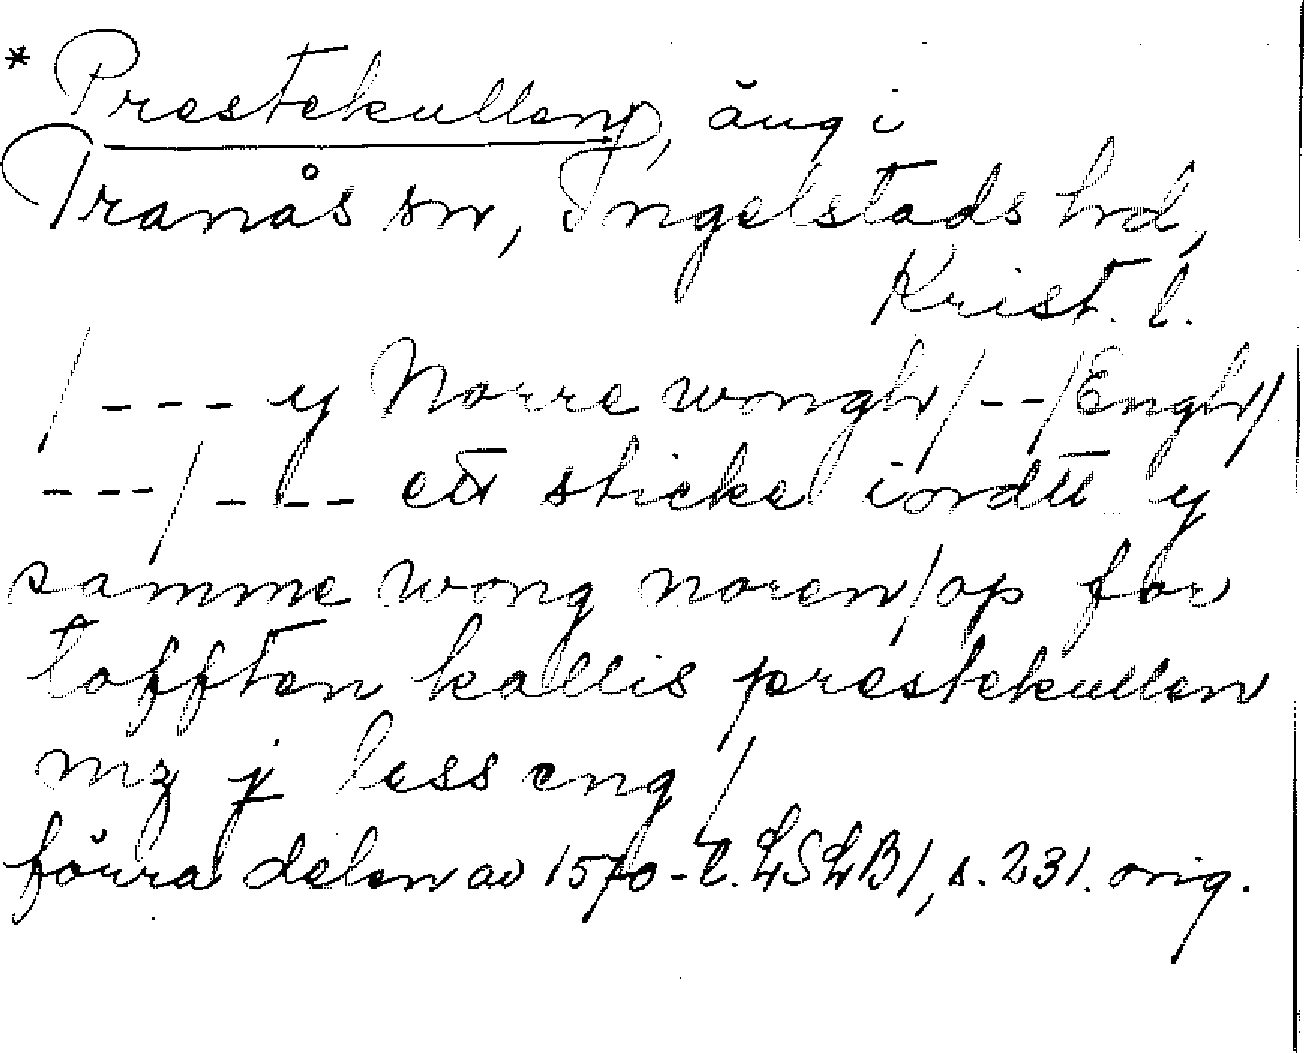 * Prestekullen, äng i
Tranås sn, Ingelstads hd,
Krist. l.
/ - - - y Norre wongh / - - / Engh /
- - - / - - - ett sticke iordtt y
samme wong noren / op for
tofften kallis prestekullen
mz j less eng /
förra delen av 1570-t. LSLB 1, s. 231. orig.